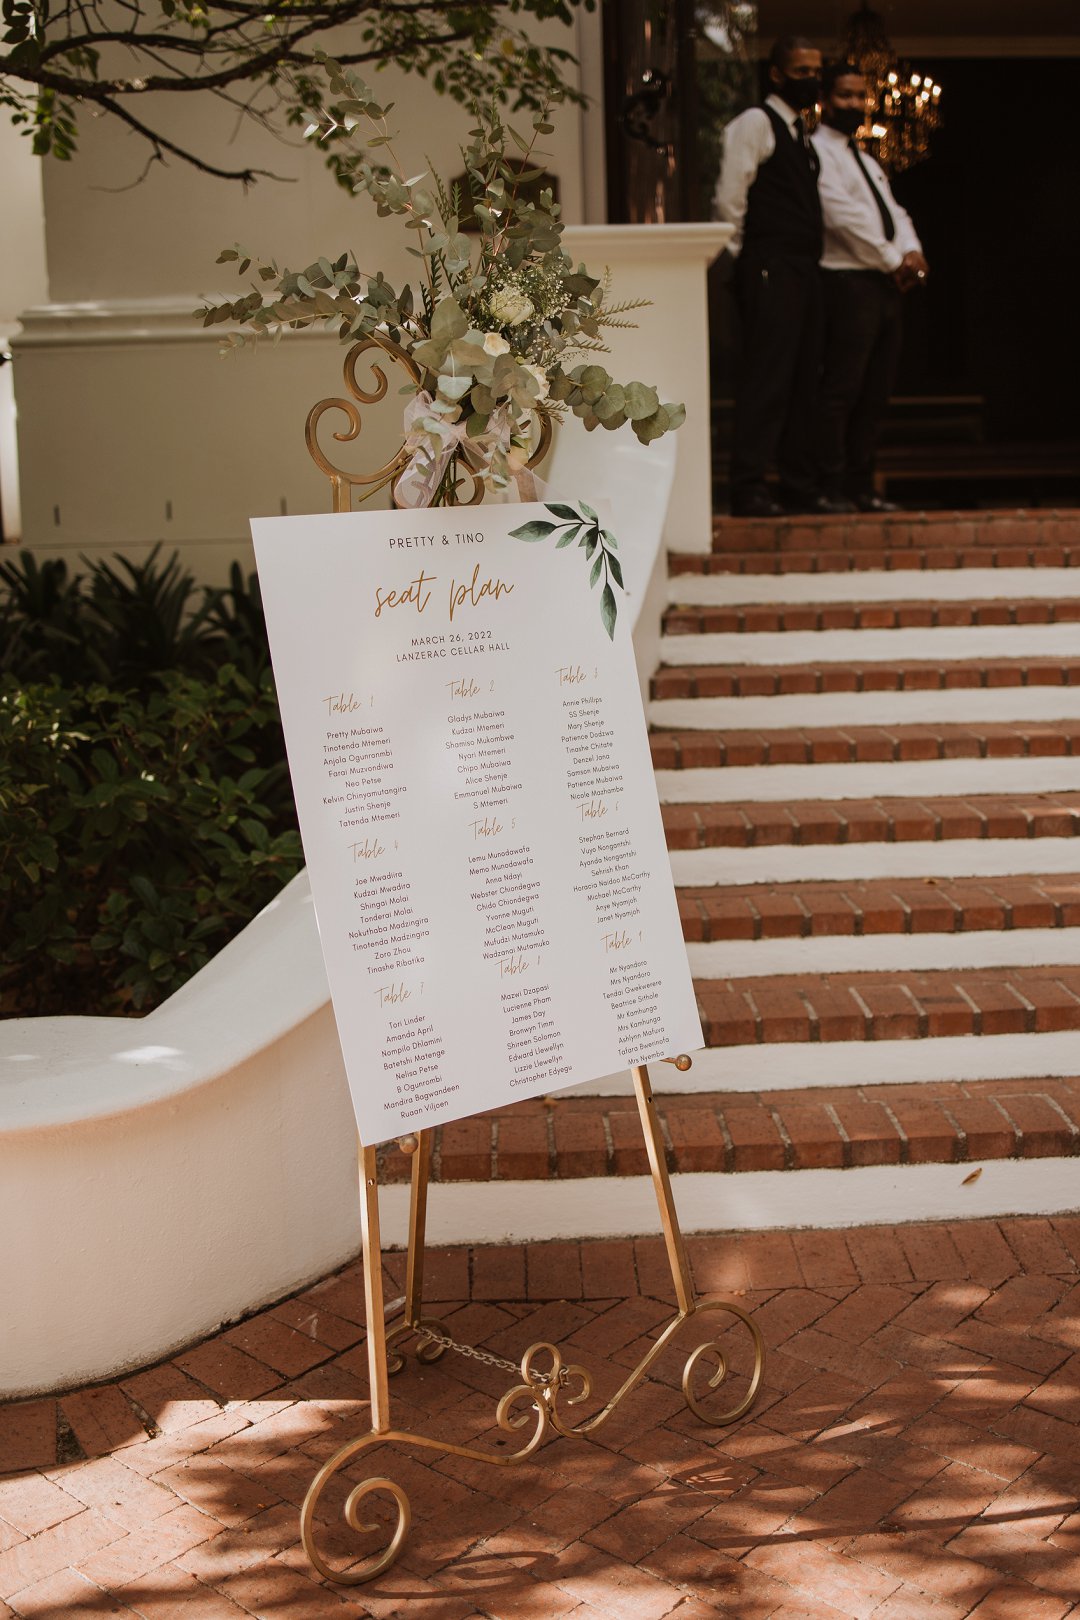 PRETTY & TINO
seat plan
MARCH 26, 2022
LANZERAC CELLAR HALL
Table 1
Pretty Mubaiwa
Tinotenda Mtemeri
Anjola Ogunronmbi
Farai Muzvondiwa
Neo Petse
Kelvin Chinyamutangira
Justin Shenje
Tatenda Mtemeri
Table 2
Gladys Mubaiwa
Kudzai Mtemeri
Shamiso Mukombwe
Nyari Mtemeri
Chipo Mubaiwa
Alice Shenje
Emmanuel Mubaiwa
S Mtemeri
Table 3
Annie Phillips
SS Shenje
Mary Shenje
Patience Dodzwa
Tinashe Chitate
Denzel Jana
Samson Mubaiwa
Patrence Mubaiwa
Nicole Mazhambe
Table 4
Joe Mwadiira
Kudzai Mwadira
Shingai Molai
Tonderai Molai
Nokuthaba Madzingira
Tinotenda Madzingira
Zoro Zhou
Tinashe Ribatika
Table 5
Lemu Munodawafa
Memo Munodawafa
Anna Ndayi
Webster Chiondegwa
Chido Chiondegwa
Yvonne Muguti
McClean Muguti
Mufudzi Mutamuko
Wadzanai Mutamuko
Table 6
Stephan Bernard
Vuyo Nongantshi
Ayanda Nongantshi
Sehrish Khan
Horacia Naidoo McCarthy
Michael McCarthy
Anye Nyamjoh
Janet Nyamjoh
Table 7
Tori Linder
Amanda April
Nompilo Dhlamini
Batetshi Matenge
Nelisa Petse
B Ogunrombi
Mandira Bagwandeen
Ruaan Viljoen
Table
Mazwi Dzapasi
Lucienne Pham
James Day
Bronwyn Timm
Shireen Solomon
Edward Llewellyn
Lizzie Llewellyn
Christopher Edyegu
Table 9
Mr Nyandoro
Mrs Nyandoro
Tendai Gwekwerere
Beatrice Sithole
Mr Kamhunga
Mrs Kamhunga
Ashlynn Mafura
Tafara Bwerinofa
Mrs Nyemba